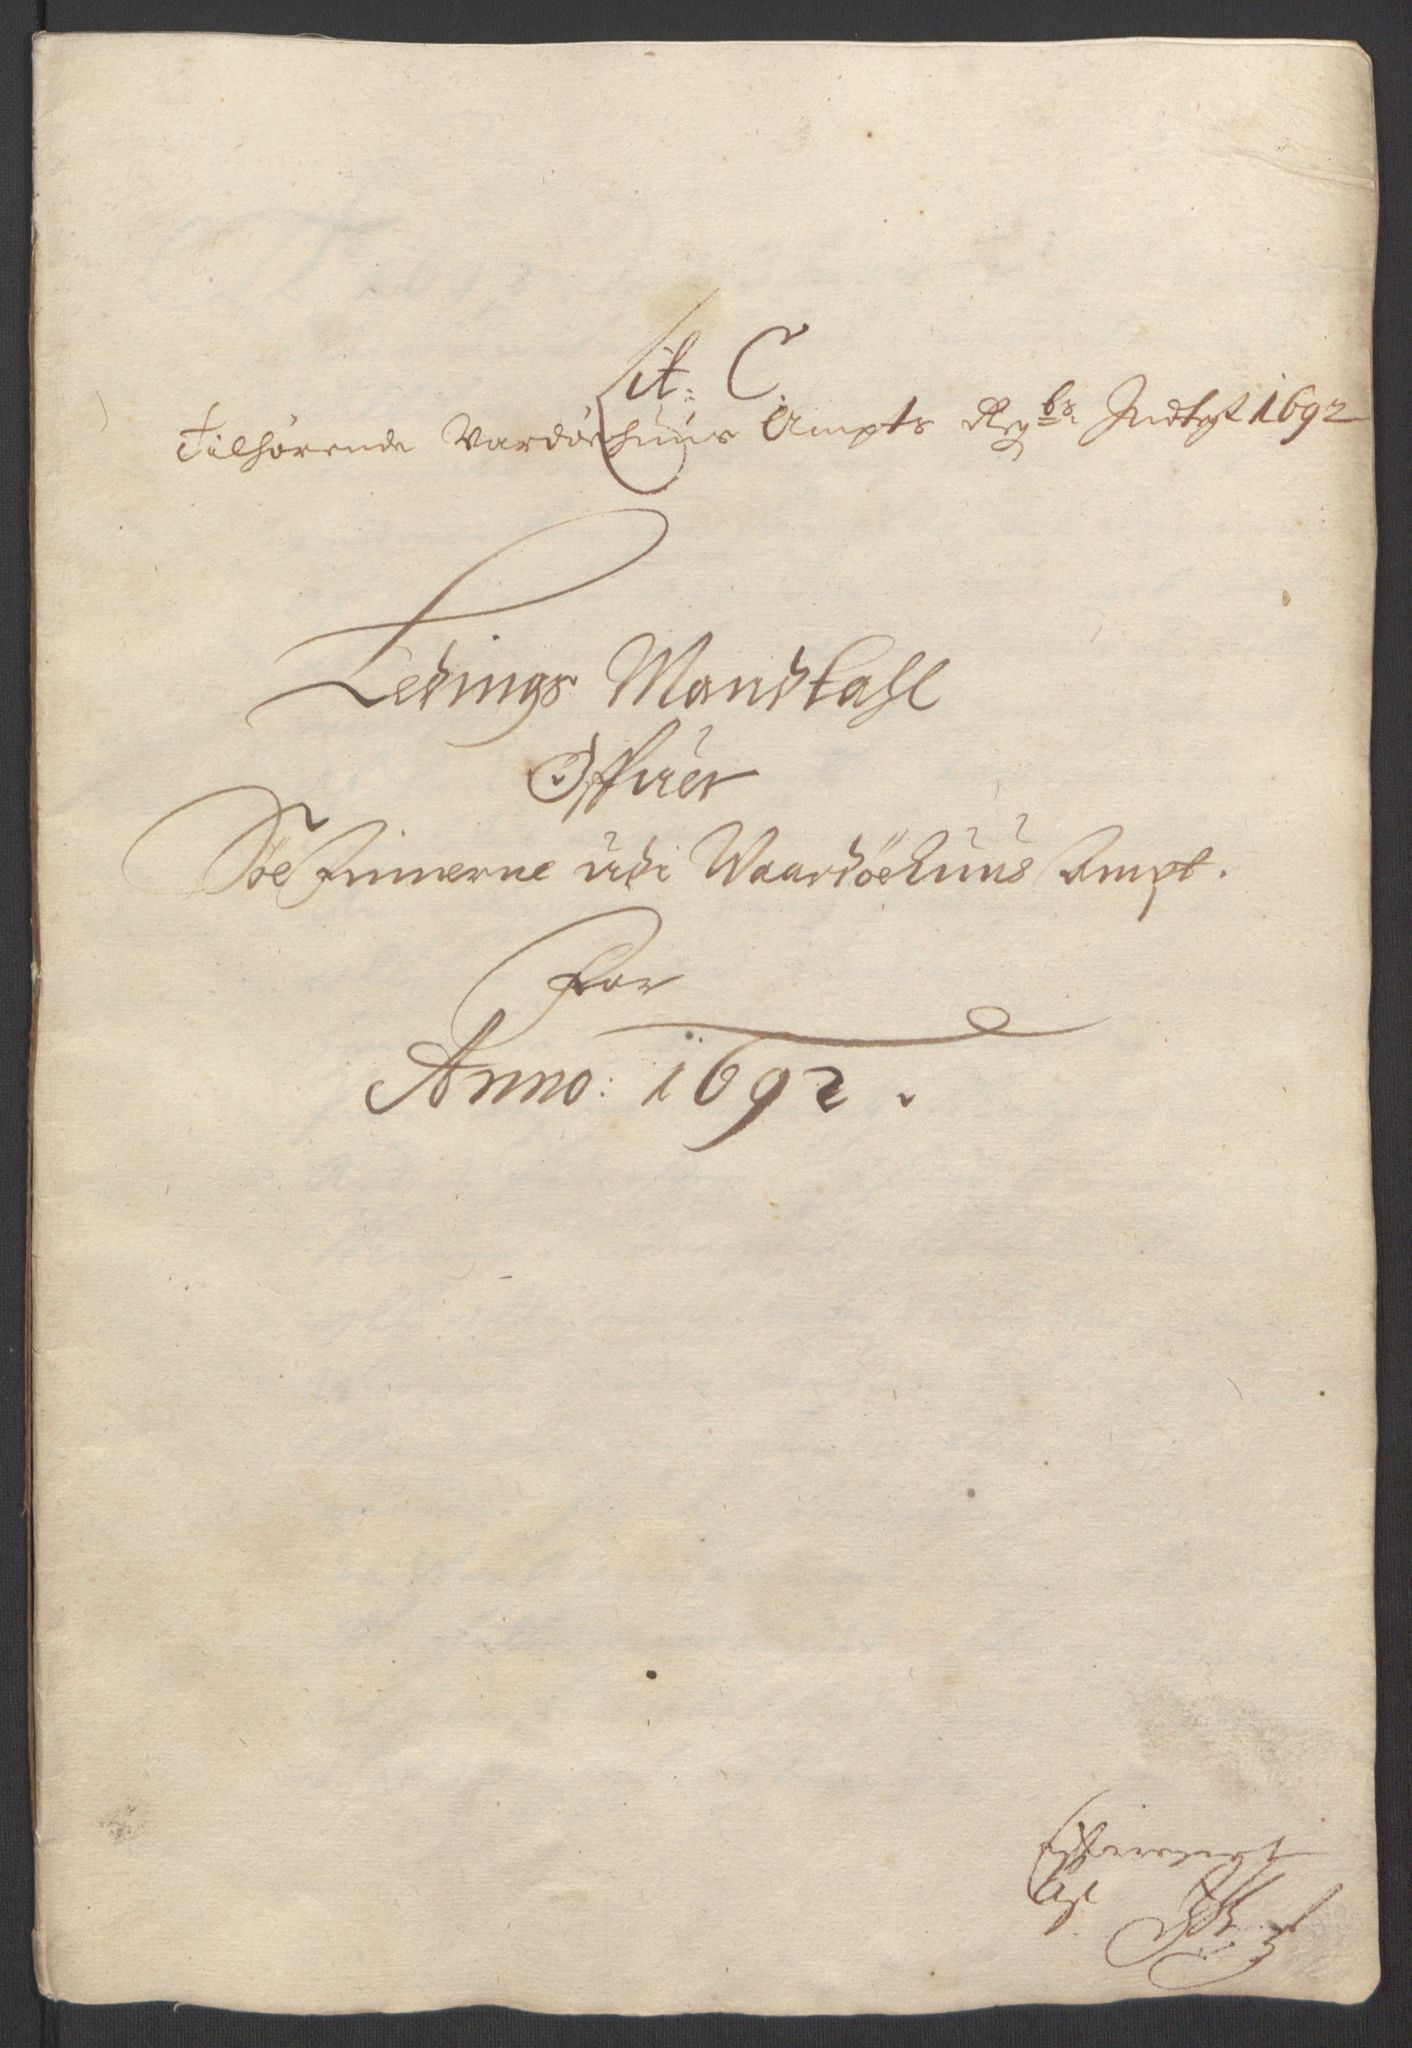 Lit: C.
Tilhørende Vardøehuus Ampts Regbs Indtegt 1692
Ledings Mandtahl
Offuer
Søe Finnerne udi Waardøehuus Ampt.
For
Anno: 1692.